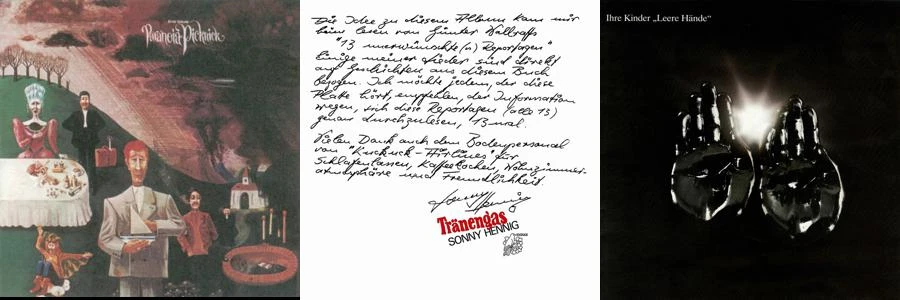 Paranoia-Picknick
Die Idee zu diesem Album kam mir
beim lesen von Günter Wallraffs
"13 unerwünschte(n) Reportagen"
Einige meiner Lieder sind direkt
auf Geschichten aus diesem Buch
bezogen. Ich möchte jedem, der diese
Platte hört, empfehlen, der Information
wegen, sich diese Reportagen (alle 13)
genau durchzulesen, 13 mal.
Vielen Dank auch dem Bodenpersonal
von "Kuckuck-Airlines für
Schlafenlassen, Kaffeekochen, Wohnzimmer-
atmosphäre und Freundlichkeit.
Sonny Hennig
Tränengas
SONNY HENNIG
Ihre Kinder „Leere Hände“